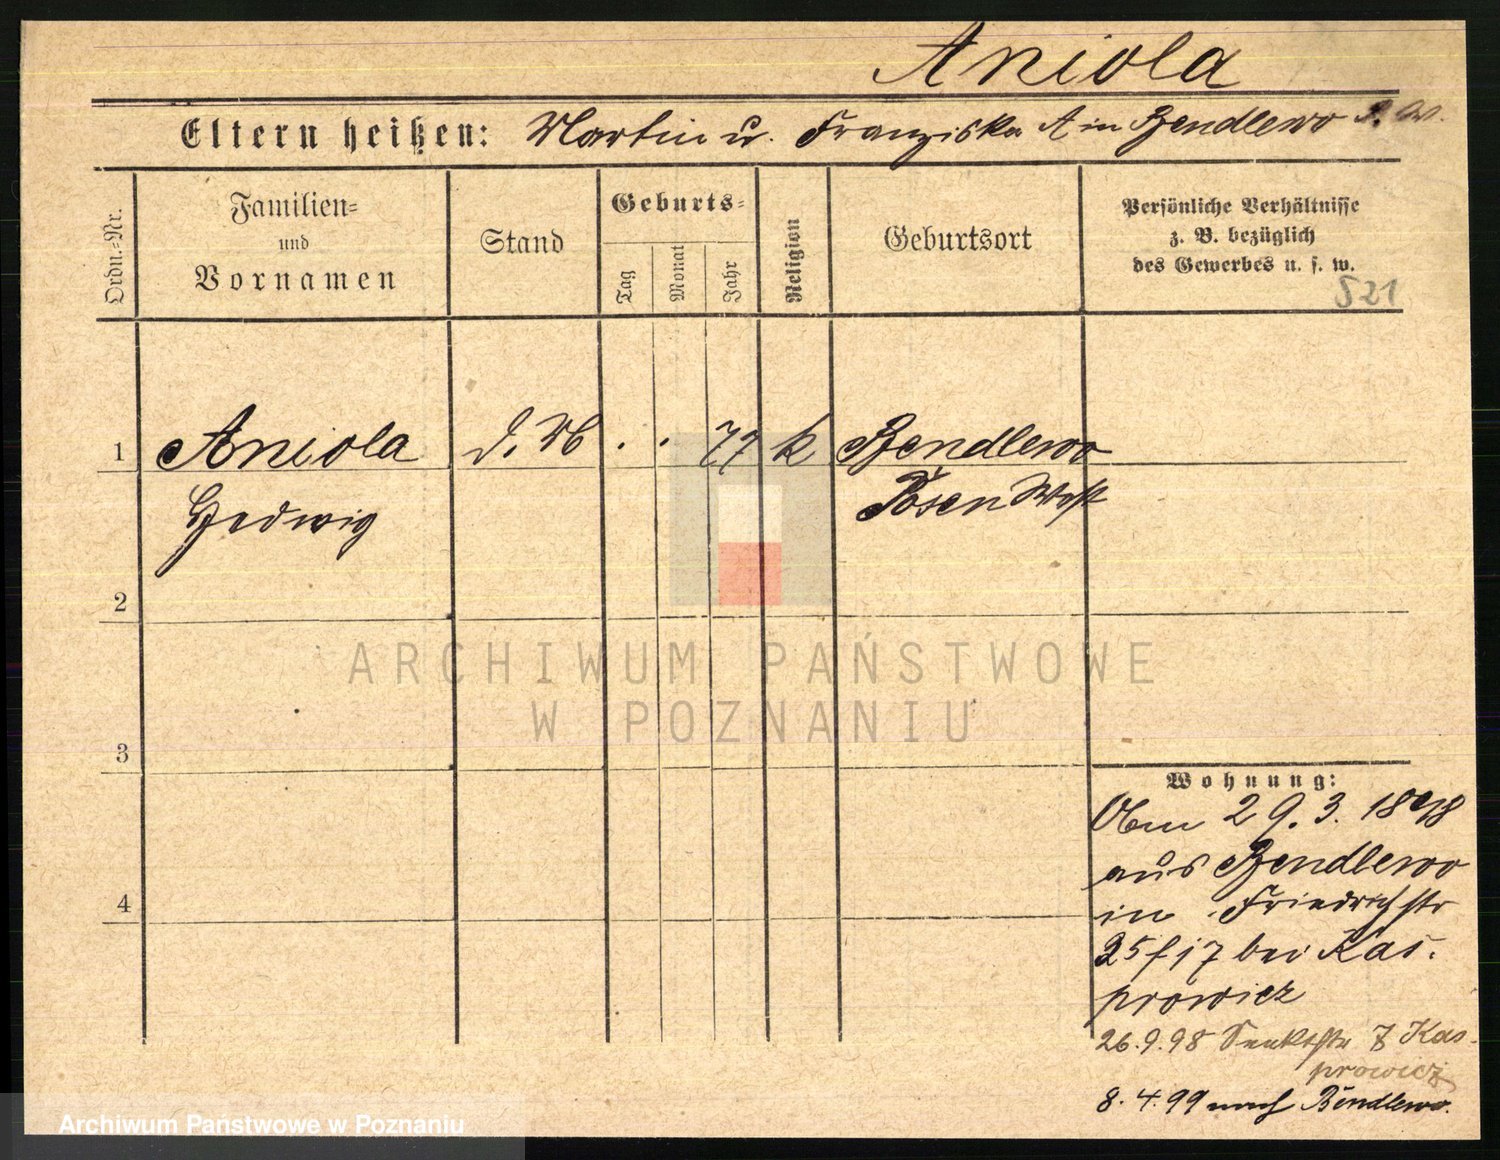 Aniola
Eltern heißen: Martin u. Franziska A in Bendlewo P. W.
Ordn.-Nr.
Familien-
und
Vornamen
Stand
Geburts-
Tag
Monat
Jahr
Religion
Geburtsort
Persönliche Verhältnisse
z. B. bezüglich
des Gewerbes u. s. w.
521
1 Aniola d. M . . 77 k Bendlewo
Hedwig Posen West
2
3
4
Wohnung:
Am 29. 3. 1898
aus Bendlewo
in Friedrichstr
25 f 17 bei Kas-
prowicz
26.9.98 7 Kas-
prowicz
8. 4. 99 nach Bendlewo.
ARCHIWUM PAŃSTWOWE
W POZNANIU
Archiwum Państwowe w Poznaniu